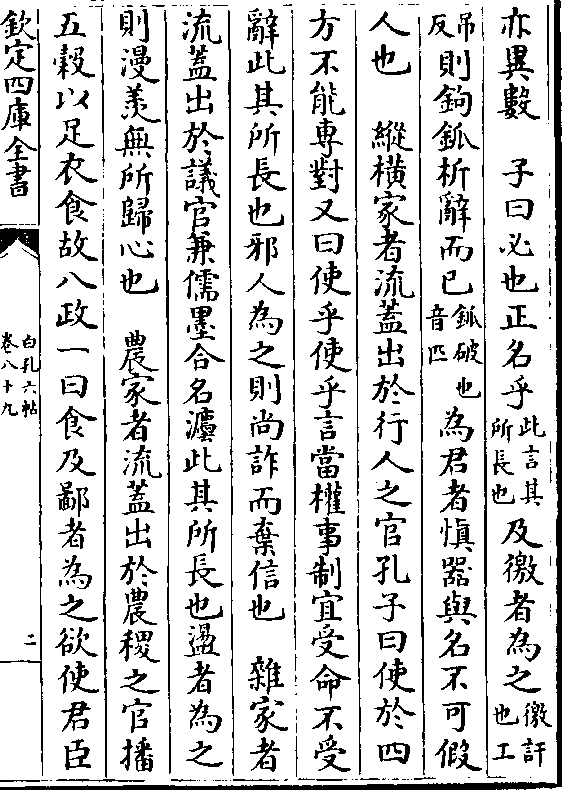 亦異數　子曰必也正名乎此言其所長也及徼者為之徼訐也工
吊反則鉤鈲析辭而已鈲破也音匹為君者慎器與名不可假
人也　縱橫家者流蓋出於行人之官孔子曰使於四
方不能専對又曰使乎使乎言當權事制宜受命不受
辭此其所長也邪人為之則尚詐而棄信也　雜家者
流蓋出於議官兼儒墨合名灋此其所長也盪者為之
則漫羨無所歸心也　農家者流蓋出於農稷之官播
五穀以足衣食故八政一曰食及鄙者為之欲使君臣
欽定四庫全書
白孔六帖
卷八十九
二